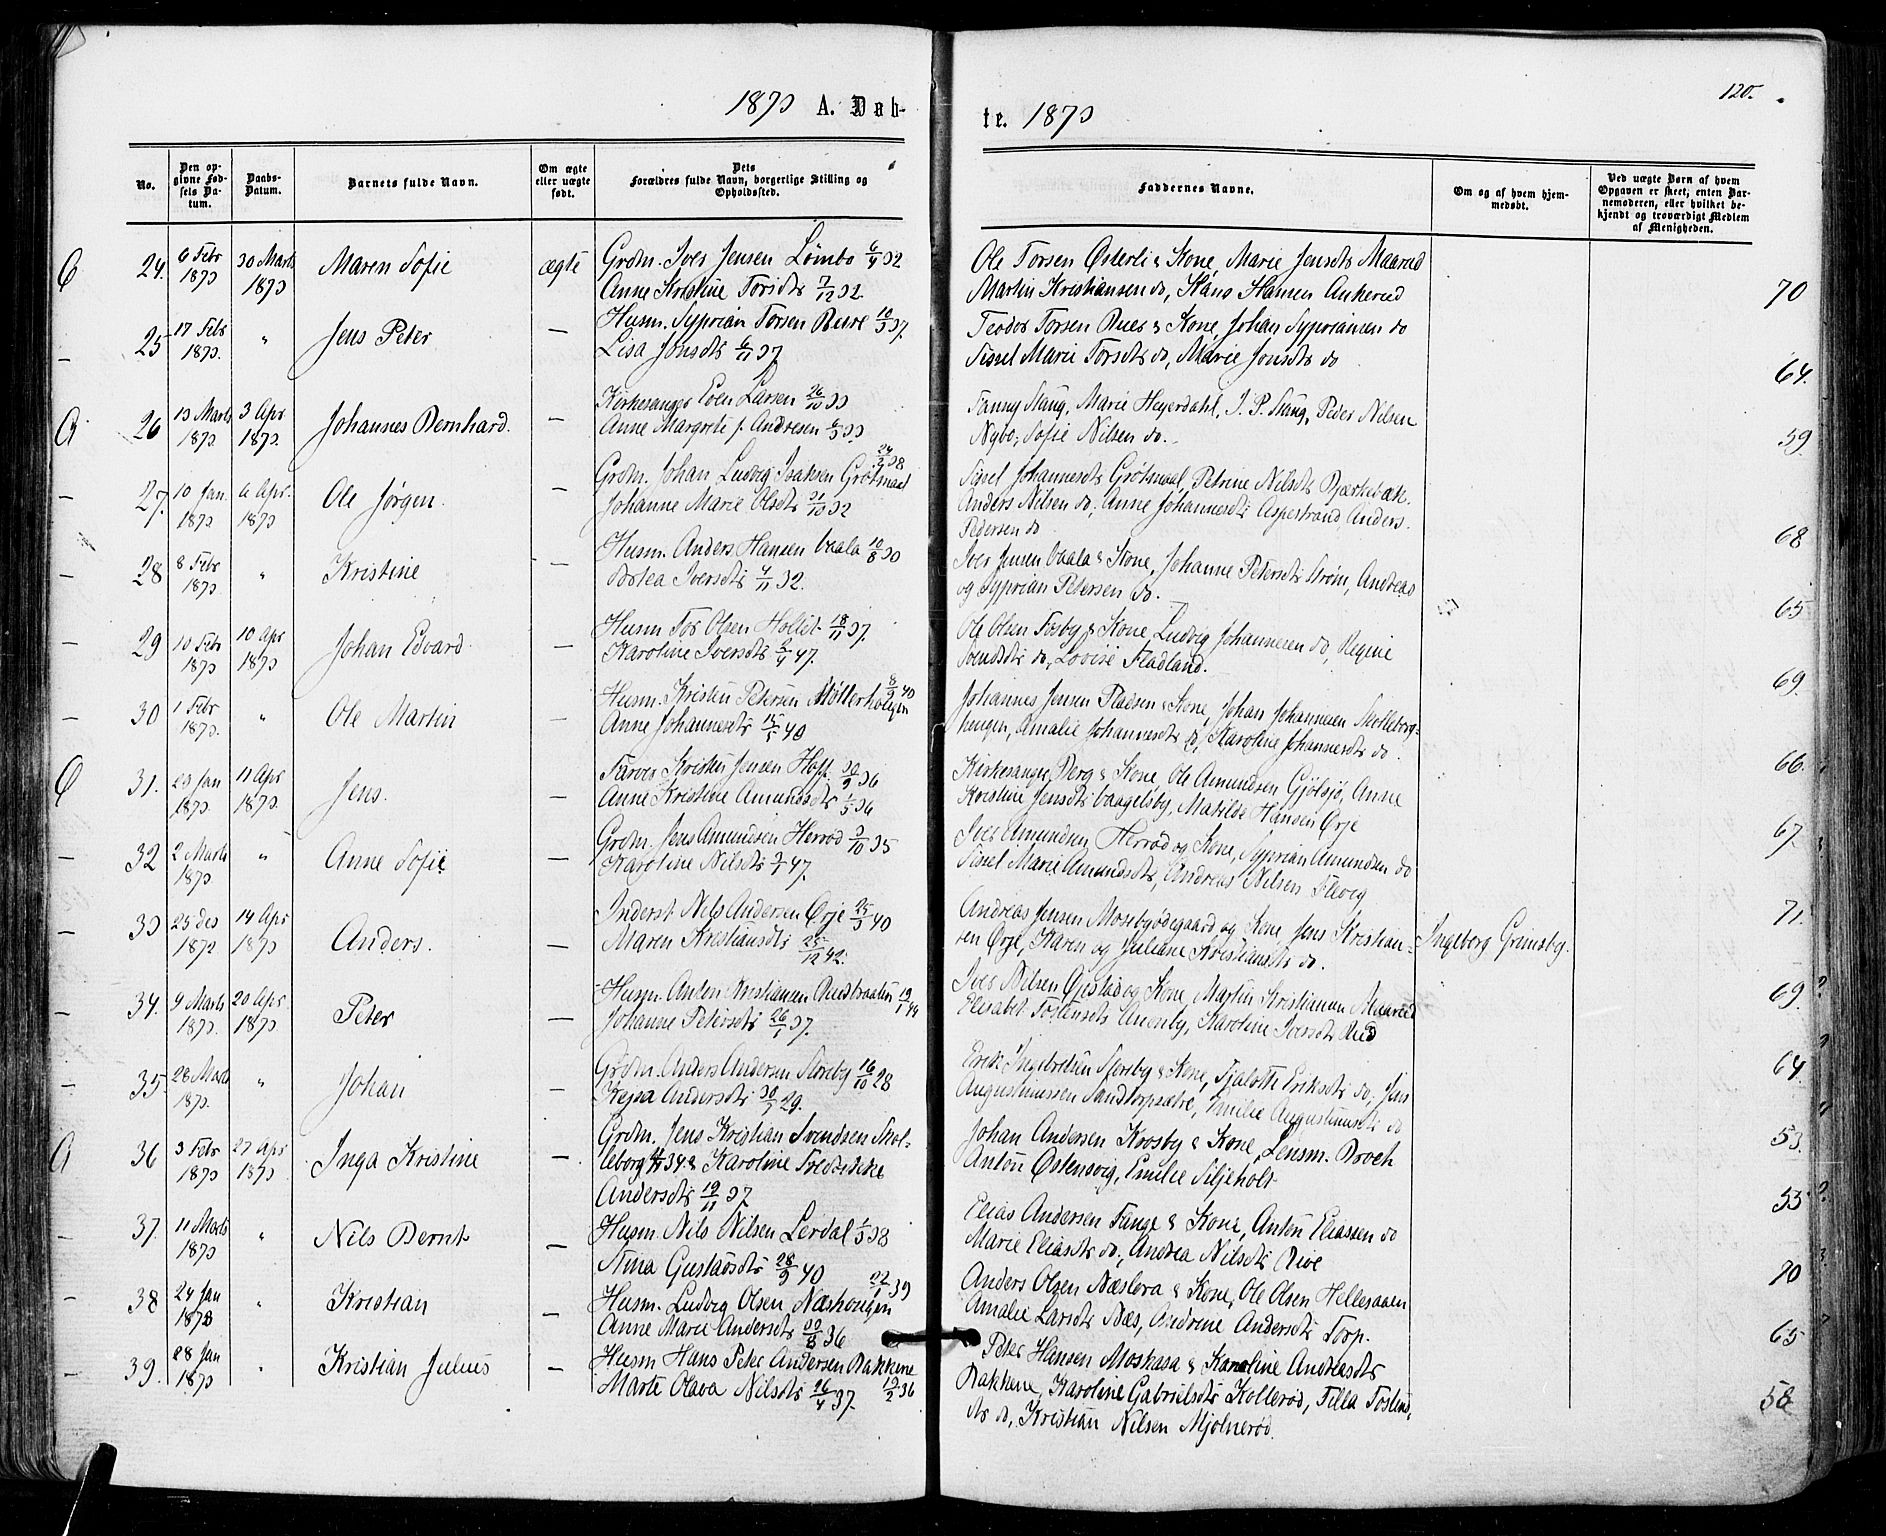 120.
1873 A. Døb-
te. 1873
No.
Den op-
givne Fød-
sels Da-
tum.
Daabs-
Datum.
Barnets fulde Navn.
Om ægte
eller uægte
født.
Dets
Forældres fulde Navn, borgerlige Stilling og
Opholdssted.
Faddernes Navne.
Om og af hvem hjem-
medøbt.
Ved uægte Børn af hvem
Opgaven er skeet, enten Bar-
nemoderen, eller hvilket be-
kjendt og troværdigt Medlem
af Menigheden.
24. 6 Febr 1873 30 Marts 1873 Maren Sofie ægte Grdm. Iver Jensen Lømbo 6/4 32
Anne Kristine Torsdtr 7/12 32.
Ole Torsen Østerli & Kone, Marie Jensdtr Maarud
Martin Kristiansen do, Hans Hansen Ankerud
70
25 17 Febr 1873. " Jens Peter — Husm. Syprian Torsen Bure 10/3 37.
Lisa Jonsdtr 6/11 37
Teodor Torsen Buer & Kone, Johan Syprianen do
Sissel Marie Torsdtr do, Marie Jonsdtr do
64.
26 13 Marts 1873 3 Apr 1873. Johannes Bernhard. — Kirkesanger Even Larsen 26/10 33
Anne Margrete f. Andresen 6/3 33
Fanny Stang, Marie Heyerdahl, J. P. Stang, Peder Nilsen
Nybo, Sofie Nilsen do.
59.
27. 10 Jan. 1873 6 Apr. 1873 Ole Jørgen. — Grdm. Johan Ludvig Isaksen Grøtmaal 24/2 38
Johanne Marie Olsdtr 21/10 32
Sissel Johannesdtr Grøtmaal, Petrine Nilsdtr Bjærkebæk.
Anders Nilsen do, Anne Johannesdtr Aspestrand, Anders
Pedersen do
68
28 8 Febr 1873. " Kristine — Husm. Anders Hansen Vaala 10/8 30
Botea Iversdtr 4/11 32.
Iver Jensen Vaala & Kone, Johanne Petersdtr Strøm, Andreas
og Syprian Petersen do.
65
29 10 Febr 1873 10 Apr 1873 Johan Edvard. — Husm Tor Olsen Holtet 18/11 37.
Karoline Iversdtr 2/4 47.
Ole Olsen Fosby & Kone, Ludvig Johannesen do, Regine
Svendsdtr do, Lovise Fladland.
69.
30 1 Febr 1873. " Ole Martin — Husm. Kristen Petersen Møllerhougen 8/2 40
Anne Johannesdtr 15/5 40
Johannes Jensen Pladsen & Kone, Johan Johannesen Skolleborg-
hougen, Amalie Johannesdtr do, Karoline Johannesdtr do.
66.
31. 23 Jan 1873. 11 Apr 1873. Jens. — Farver Kristen Jensen Hoff. 30/9 36
Anne Kristine Amundsdtr 1/5 36
Kirkesanger Berg & Kone, Ole Amundsen Gjølsjø, Anne
Kristine Jensdtr Vaagelsby, Matilde Hansen Ørje
67.
32 2 Marts 1873 " Anne Sofie — Grdm. Jens Amundsen Herrød 3/10 35
Karoline Nilsdtr 2/7 47.
Iver Amundsen Herrød og Kone, Syprian Amundsen do
Sissel Marie Amundsdtr, Andreas Nilsen Flaveg
71.
33 25 Des 1872 14 Apr 1873 Anders. — Inderst Nils Andersen Ørje 25/3 40
Maren Kristiansdtr 25/12 42.
Andreas Jensen Mosebyødegaard og Kone, Jens Kristian-
sen Ørje, Karen og Juliane Kristiansdtr do.
Ingeborg Grimsby.
69.
34. 9 Marts 1873. 20 Apr 1873 Peter — Husm. Anton Kristiansen Rudbraaten 19/1 44
Johanne Petersdtr 26/1 37.
Iver Nilsen Gustad og Kone, Martin Kristiansen Maarud
Elisabet Torstensdtr Unenby, Karoline Iversdtr Rud
64.
35. 28 Marts 1873. " Johan — Grdm. Anders Andersen Storeby 16/10 28
Kajsa Andersdtr 30/7 29.
Erik Ingebretsen Storeby & Kone, Sjalotte Eriksdtr do, Jens
Augustinussen Sandtorpsætre, Emilie Augustinusdtr do
53.
36 3 Febr 1873 27 Apr 1873 Inga Kristine — Grdm. Jens Kristian Svendsen Skol-
leborg 34 & Karoline Fredrikke
Andersdtr 19/11 37
Johan Andersen Krosby & Kone, Lensm. Broch
Anton Østensvig, Emilie Siljeholt
53
37. 11 Marts 1873 " Nils Bernt — Husm. Nils Nilsen Lerdal 1/5 38
Nina Gustavsdtr 28/9 40
Elias Andersen Tange & Kone, Anton Eliassen do
Marie Eliasdtr do, Andrea Nilsdtr Rive
70
38 24 Jan 1873 " Kristian — Husm. Ludvig Olsen Næshougen 22/1 39
Anne Marie Andersdtr 30/8 36
Anders Olsen Næslora & Kone, Ole Olsen Hellesaaen
Amalie Larsdtr Næs, Andrine Andersdtr Torp.
65
39. 28 Jan 1873 " Kristian Julius — Husm Hans Peter Andersen Bakkene 19/2 36
Marte Olava Nilsdtr 26/4 37.
Peter Hansen Moskasa & Karoline Andreasdtr
Bakkene, Karoline Gabrielsdtr Kollerød, Tilla Tostens-
dtr do, Kristian Nilsen Mjølnerød.
58